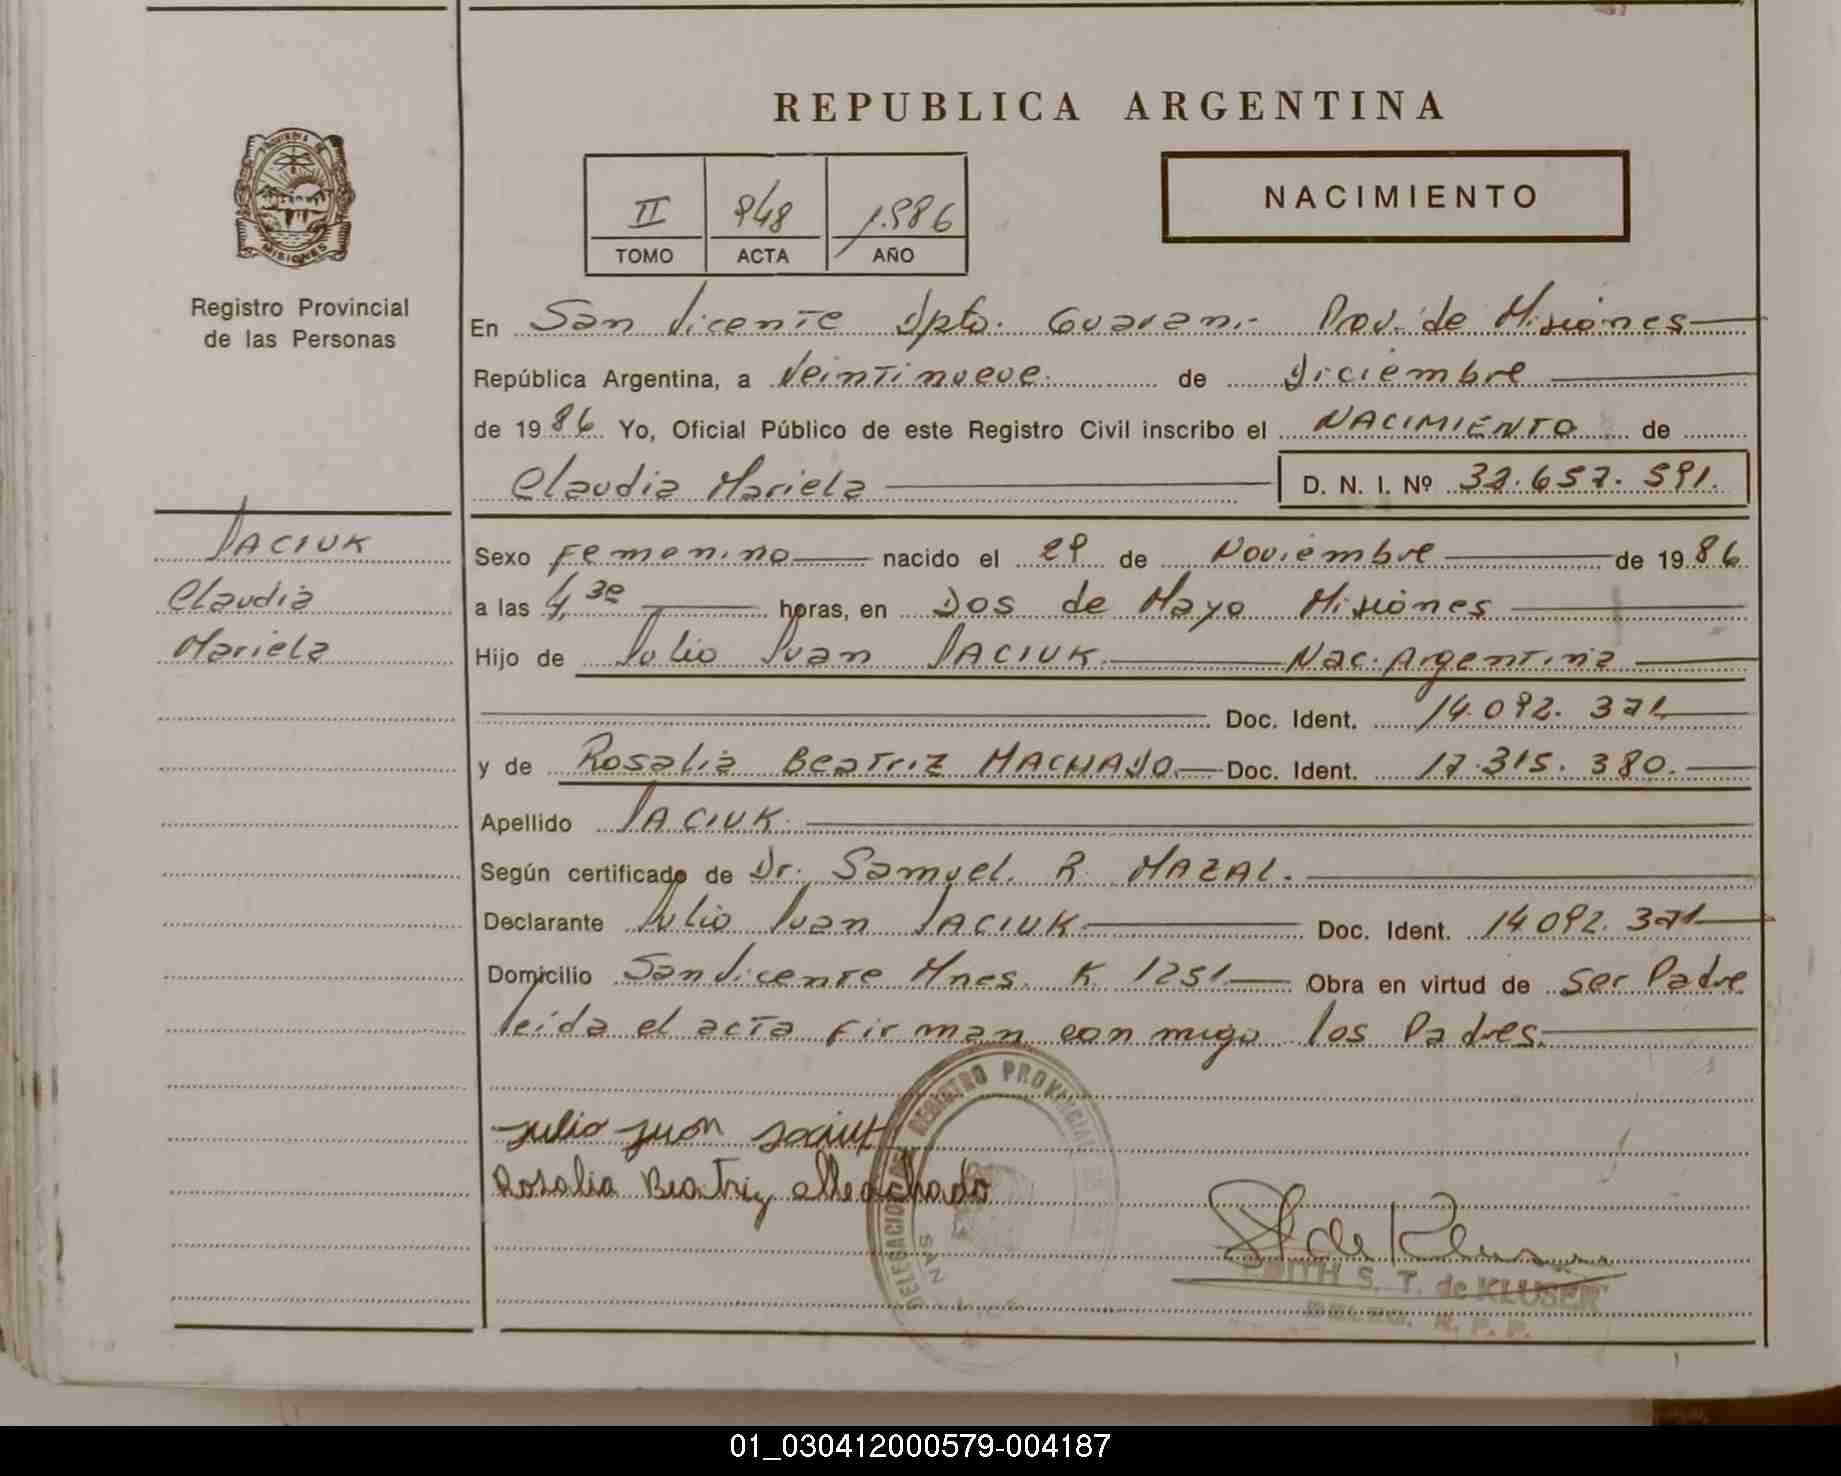 REPUBLICA ARGENTINA
PROVINCIA DE
MISIONES
Registro Provincial
de las Personas
II 848 1.986
TOMO ACTA AÑO
NACIMIENTO
En San Vicente Dpto. Guarani Prov. de Misiones
República Argentina, a Veintinueve de Diciembre
de 1986 Yo, Oficial Público de este Registro Civil inscribo el NACIMIENTO de
Claudia Mariela D. N. I. Nº 32.657.591.
JACIUK
Claudia
Mariela
Sexo Femenino nacido el 29 de Noviembre de 1986
a las 4,30 horas, en Dos de Mayo Misiones
Hijo de Julio Juan JACIUK Nac. Argentina
Doc. Ident. 14.092.371
y de Rosalia Beatriz MACHADO Doc. Ident. 17.315.380.
Apellido JACIUK
Según certificado de Dr. Samuel. R. MAZAL.
Declarante Julio Juan JACIUK Doc. Ident. 14.092.371
Domicilio San Vicente Mnes. K. 1251 Obra en virtud de ser Padre
leida el acta firman con migo los Padres.
Julio Juan Jaciuk
Rosalia Beatriz Machado
DELEGACION REGISTRO PROVINCIAL
SAN VICE
S T de Kluser
EDITH S. T. de KLUSER
DELEG. R. P. P.
01_030412000579-004187